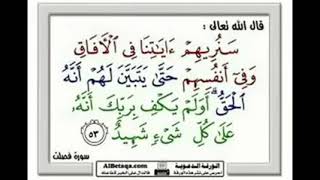 قال الله تعالى :
سَنُرِيهِمْ ءَايَٰتِنَا فِى ٱلْءَافَاقِ
وَفِىٓ أَنفُسِهِمْ حَتَّىٰ يَتَبَيَّنَ لَهُمْ أَنَّهُ
ٱلْحَقُّ ۗ أَوَلَمْ يَكْفِ بِرَبِّكَ أَنَّهُۥ
عَلَىٰ كُلِّ شَىْءٍ شَهِيدٌ ٥٣
سورة فصلت
الورقة الدعوية
AlBetaqa.com